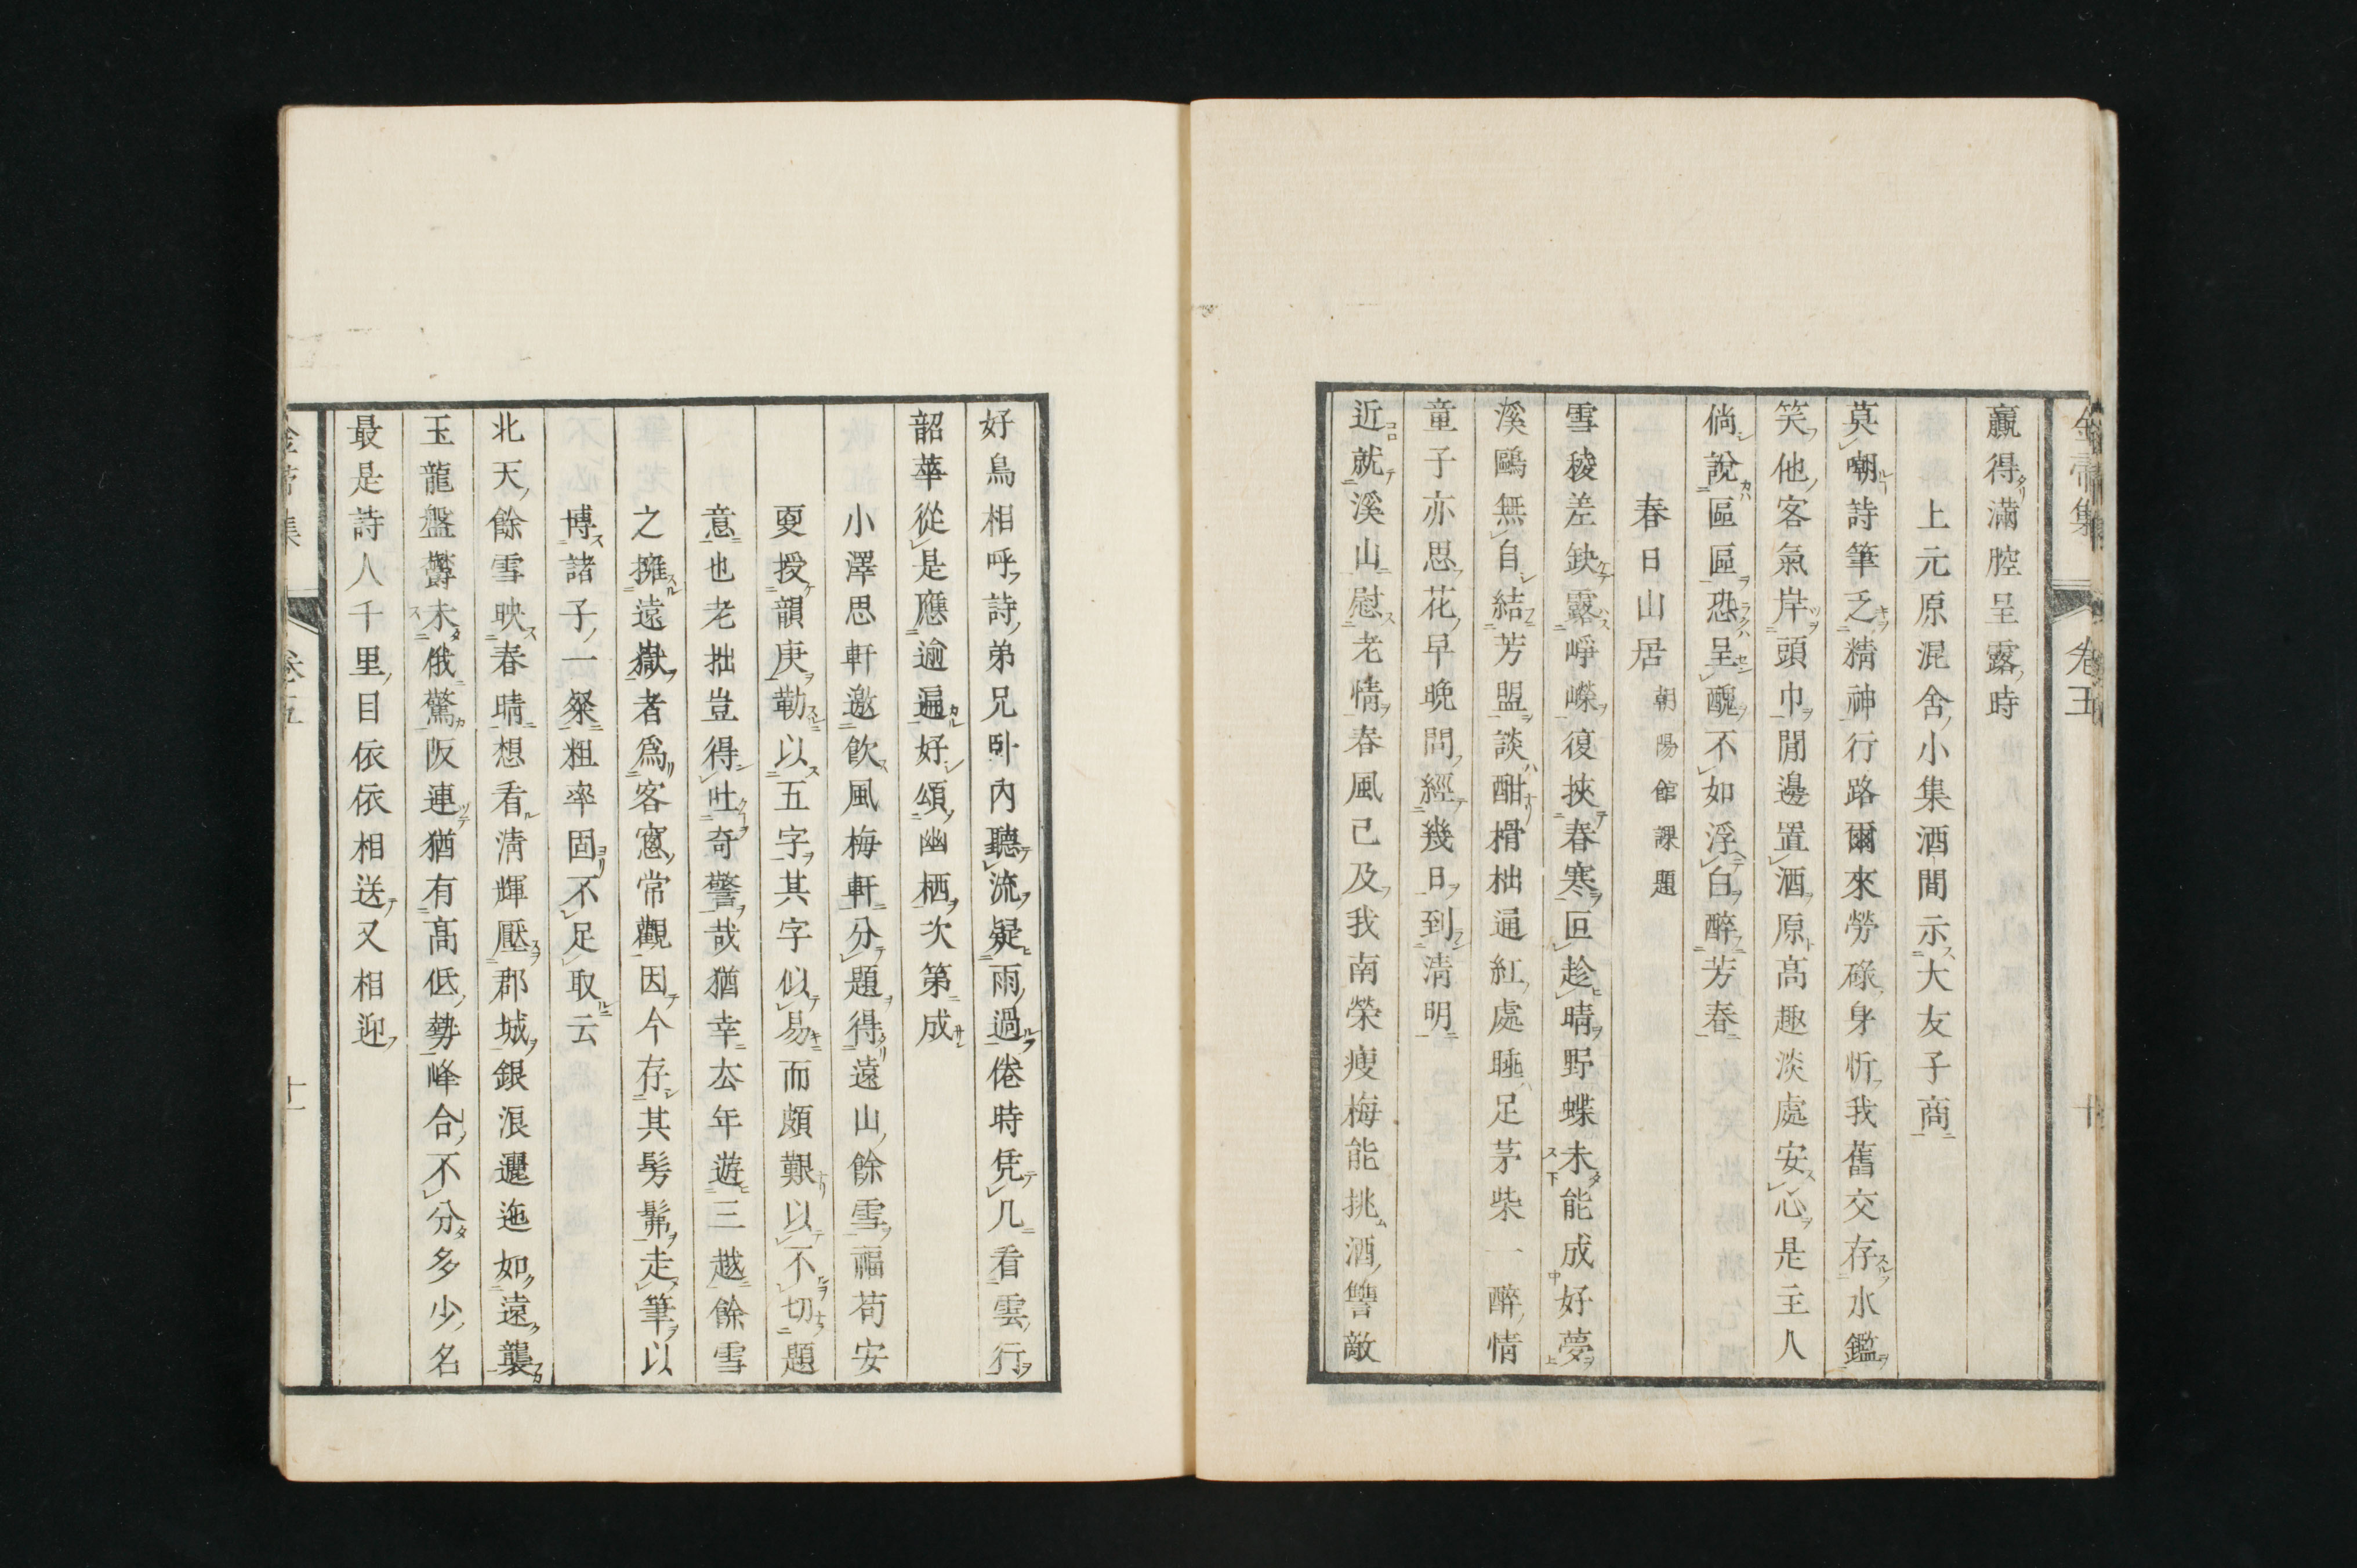 金帚集 卷五 十
贏得滿腔呈露時
上元原混舍小集酒間示大友子商
莫嘲詩筆乏精神行路爾來勞碌身忻我舊交存水鑑
笑他客氣岸頭巾閒邊置酒原高趣淡處安心是主人
倘說區區恐呈醜不如浮白醉芳春
春日山居 朝陽館課題
雪稜差缺露崢嶸復挾春寒叵趁晴野蝶未能成好夢
溪鷗無自結芳盟談酣榾柮通紅處睡足茅柴一醉情
童子亦思花早晚問經幾日到淸明
近就溪山慰老情春風已及我南榮瘦梅能挑酒讐敵
好鳥相呼詩弟兄卧內聽流疑雨過倦時凭几看雲行
韶華從是應逾遍好頌幽栖次第成
小澤思軒邀飲風梅軒分題得遠山餘雪福苟安
更授韻庚勒以五字其字似易而頗艱以不切題
意也老拙豈得吐奇警哉猶幸厺年遊三越餘雪
之擁遠嶽者爲客窻常觀因今存其髣髴走筆以
博諸子一粲粗率固不足取云
北天餘雪映春晴想看淸輝壓郡城銀浪邐迤如遠襲
玉龍盤欝未俄驚阪連猶有高低勢峰合不分多少名
最是詩人千里目依依相送又相迎
金帚集 卷五 十一